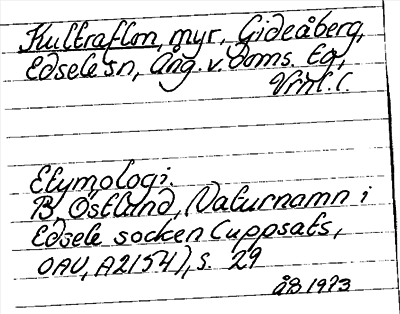 Kultraflon, myr, Gideåberg,
Edsele sn, Ång. v. doms. Eq,
Vrnl. l.
Etymologi.
B. Östlund, Naturnamn i
Edsele socken (uppsats,
OAU, A2154), s. 29
åB 1973